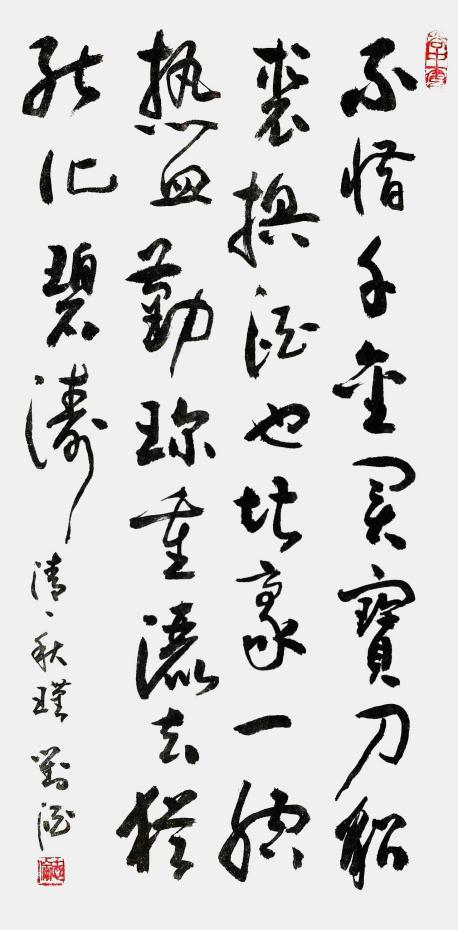 不惜千金買寶刀貂
裘換酒也堪豪一腔
熱血勤珍重灑去猶
能化碧濤
清、秋瑾對酒